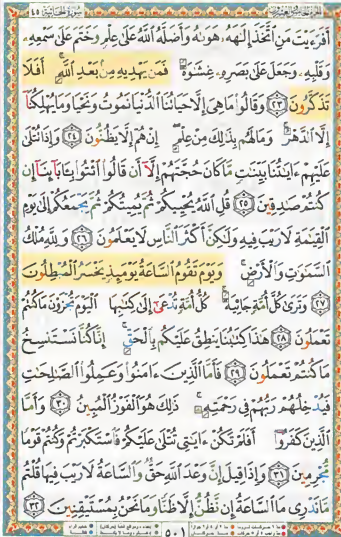 سورة الجاثية ٤٥
أَفَرَءَيْتَ مَنِ ٱتَّخَذَ إِلَٰهَهُۥ هَوَىٰهُ وَأَضَلَّهُ ٱللَّهُ عَلَىٰ عِلْمٍ وَخَتَمَ عَلَىٰ سَمْعِهِۦ
وَقَلْبِهِۦ وَجَعَلَ عَلَىٰ بَصَرِهِۦ غِشَٰوَةً فَمَن يَهْدِيهِ مِنۢ بَعْدِ ٱللَّهِ أَفَلَا
تَذَكَّرُونَ ٢٣ وَقَالُوا۟ مَا هِىَ إِلَّا حَيَاتُنَا ٱلدُّنْيَا نَمُوتُ وَنَحْيَا وَمَا يُهْلِكُنَآ
إِلَّا ٱلدَّهْرُ وَمَا لَهُم بِذَٰلِكَ مِنْ عِلْمٍ إِنْ هُمْ إِلَّا يَظُنُّونَ ٢٤ وَإِذَا تُتْلَىٰ
عَلَيْهِمْ ءَايَٰتُنَا بَيِّنَٰتٍ مَّا كَانَ حُجَّتَهُمْ إِلَّآ أَن قَالُوا۟ ٱئْتُوا۟ بِـَٔابَآئِنَآ إِن
كُنتُمْ صَٰدِقِينَ ٢٥ قُلِ ٱللَّهُ يُحْيِيكُمْ ثُمَّ يُمِيتُكُمْ ثُمَّ يَجْمَعُكُمْ إِلَىٰ يَوْمِ
ٱلْقِيَٰمَةِ لَا رَيْبَ فِيهِ وَلَٰكِنَّ أَكْثَرَ ٱلنَّاسِ لَا يَعْلَمُونَ ٢٦ وَلِلَّهِ مُلْكُ
ٱلسَّمَٰوَٰتِ وَٱلْأَرْضِ وَيَوْمَ تَقُومُ ٱلسَّاعَةُ يَوْمَئِذٍ يَخْسَرُ ٱلْمُبْطِلُونَ
٢٧ وَتَرَىٰ كُلَّ أُمَّةٍ جَاثِيَةً كُلُّ أُمَّةٍ تُدْعَىٰٓ إِلَىٰ كِتَٰبِهَا ٱلْيَوْمَ تُجْزَوْنَ مَا كُنتُمْ
تَعْمَلُونَ ٢٨ هَٰذَا كِتَٰبُنَا يَنطِقُ عَلَيْكُم بِٱلْحَقِّ إِنَّا كُنَّا نَسْتَنسِخُ
مَا كُنتُمْ تَعْمَلُونَ ٢٩ فَأَمَّا ٱلَّذِينَ ءَامَنُوا۟ وَعَمِلُوا۟ ٱلصَّٰلِحَٰتِ
فَيُدْخِلُهُمْ رَبُّهُمْ فِى رَحْمَتِهِۦ ذَٰلِكَ هُوَ ٱلْفَوْزُ ٱلْمُبِينُ ٣٠ وَأَمَّا
ٱلَّذِينَ كَفَرُوٓا۟ أَفَلَمْ تَكُنْ ءَايَٰتِى تُتْلَىٰ عَلَيْكُمْ فَٱسْتَكْبَرْتُمْ وَكُنتُمْ قَوْمًا
مُّجْرِمِينَ ٣١ وَإِذَا قِيلَ إِنَّ وَعْدَ ٱللَّهِ حَقٌّ وَٱلسَّاعَةُ لَا رَيْبَ فِيهَا قُلْتُم
مَّا نَدْرِى مَا ٱلسَّاعَةُ إِن نَّظُنُّ إِلَّا ظَنًّا وَمَا نَحْنُ بِمُسْتَيْقِنِينَ ٣٢
٥٠١